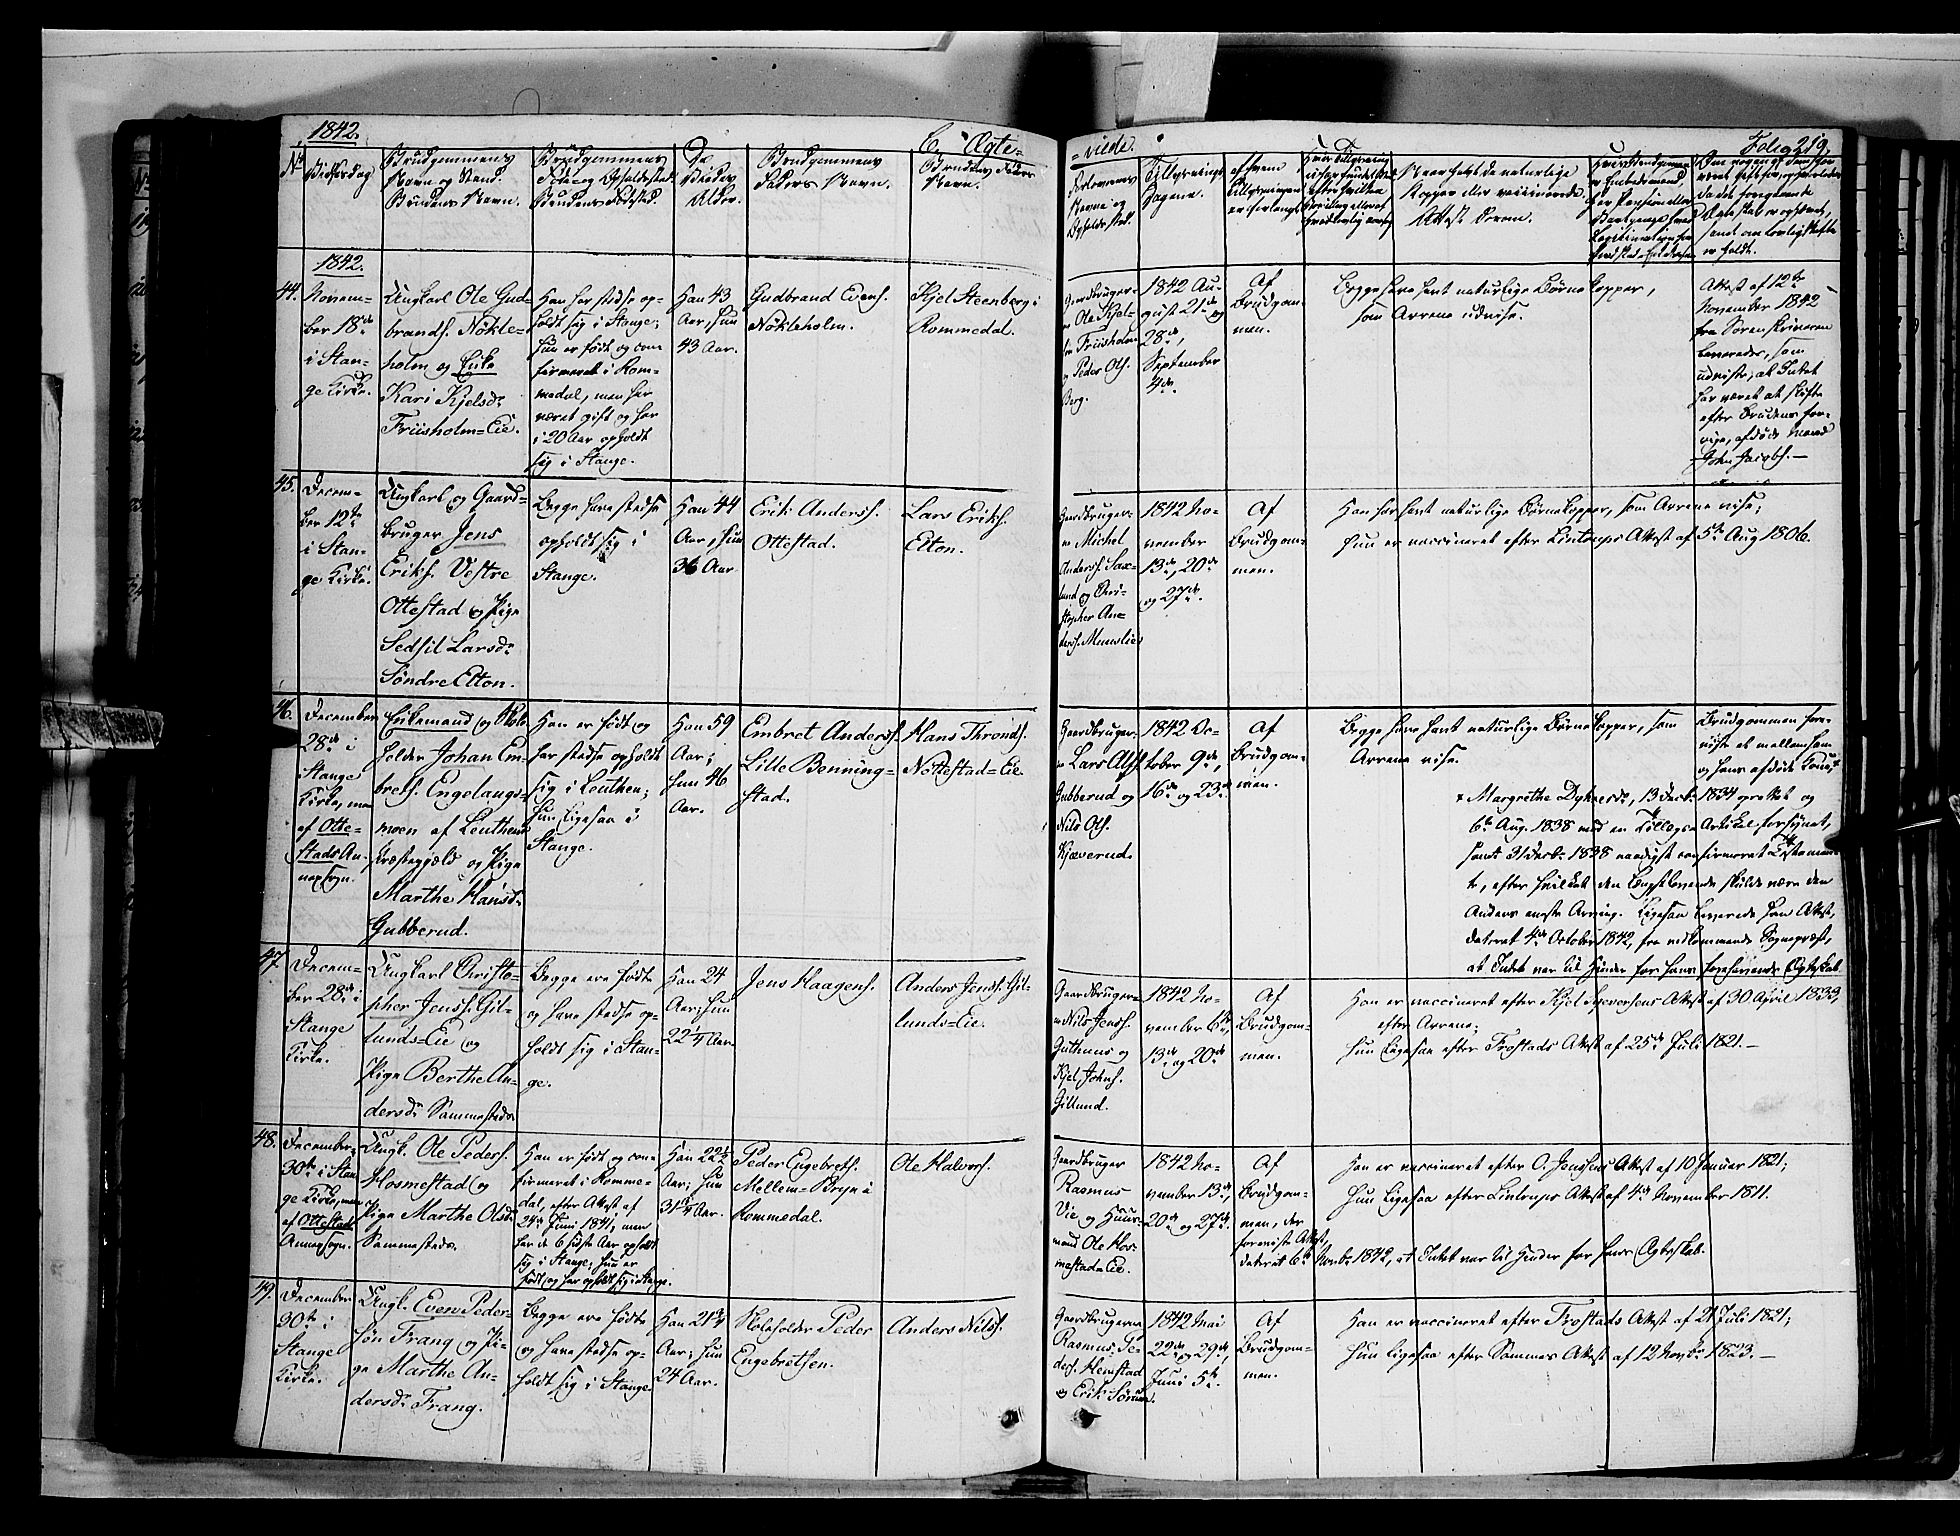 1842.
C, Ægte-
No
Vielsesdag
Brudgommens
Navn og Stand.
Brudens Navn.
Brudgommens
Føde og Opholdssted.
Brudens Fødested.
De
Viedes
Alder.
Brudgommens
Faders Navn.
Brudens Faders
Navn.
1842.
44.
Novem-
ber 18de
i Stan-
ge Kirke.
Ungkarl Ole Gud-
brands. Nökle-
holm og Enke
Kari Kjelsdr
Friisholm=Eie.
Han har stedse op-
holdt sig i Stange;
hun er født og con-
firmeret i Rom-
medal, men har
været gift og har
i 20 Aar opholdt
sig i Stange.
Han 43
Aar, hun
43 Aar.
Gudbrand Evens.
Nökleholm.
Kjel Steenberg i
Rommedal.
45.
Decem-
ber 12te
i Stan-
ge Kirke.
Ungkarl og Gaard-
bruger Jens
Eriks. Vestre
Ottestad og Pige
Sedsil Larsdr
Søndre Elton.
Begge have stedse
opholdt sig i
Stange.
Han 44
Aar, hun
36 Aar
Erik Anderss.
Ottestad.
Lars Eriks.
Elton.
46.
December
28de i
Stange
Kirke, men
af Otte-
stads An-
nexsogn.
Enkemand og Skole-
holder Johan Em-
brets. Engelaugs-
moen af Leuthens
Præstegjeld og Pige
Marthe Hansdr
Gubberud.
Han er født og
har stedse opholdt
sig i Leuthen;
hun ligesaa i
Stange.
Han 59
Aar;
hun 46
Aar.
Embret Anderss.
Lille Benning-
stad.
Hans Thronds.
Nottestad=Eie.
47.
Decem-
ber 28de i
Stange
Kirke.
Ungkarl Christo-
pher Jenss. Gil-
lunds=Eie og
Pige Berthe An-
dersdr Sammesteds.
Begge ere fødte
og have stedse op-
holdt sig i Stan-
ge.
Han 24
Aar; hun
22 1/4 Aar.
Jens Haagens.
Anders Jenss. Gil-
lunds=Eie.
48.
December
30te i Stan-
ge Kirke, men
af Ottestads
Annexsogn.
Ungk. Ole Peders.
Hosmestad og
Pige Marthe Olsdr
Sammesteds.
Han er født og con-
firmeret i Romme-
dal, efter Attest af
24de Juni 1841, men
har de 6 sidste Aar opholdt
sig i Stange; hun er
født og har opholdt sig i Stange.
Han 22 1/2
Aar; hun
31 3/4 Aar.
Peder Engebrets.
Mellem=Bryn i
Rommedal.
Ole Halvors.
49.
December
30te i
Stange
Kirke.
Ungk. Even Peder-
søn Frang og Pi-
ge Marthe An-
dersdr Frang.
Begge ere fødte
og have stedse op-
holdt sig i Stange.
Han 21 3/4
Aar; hun
24 Aar.
Skoleholder Peder
Engebretsen.
Anders Nilss.
-viede.
Folio 219.
Forlovernes
Navne og
Opholdssted.
Tillysnings
Dagene.
Af hvem
Tillysningen
er forlangt
Naar havt de naturlige
Kopper eller vaccinerede.
Attest derom.
Gaardbruger-
ne Ole Kjel-
sen Friisholm
og Peder Ols.
Berg.
1842 Au-
gust 21de og
28de,
September
4de.
Af
Brudgom-
men.
Begge have havt naturlige Børnekopper,
som Arrene udvise.
Attest af 12te
November 1842
fra Sorenskriveren
leveredes, som
udviste, at Intet
har været at skifte
efter Brudens for-
rige, afdøde Mand
John Jacobs.—
Gaardbruger-
ne Michel
Anderss. Sax-
lund og Chri-
stopher An-
derss. Munslie
1842 No-
vember
13de, 20de
og 27de.
Af
Brudgom-
men.
Han har havt naturlige Børnekopper, som Arrene vise;
hun er vaccineret efter Lintrups Attest af 5te Aug 1806.
Gaardbruger-
ne Lars Alfs.
Gubberud og
Nils Ols.
Kjæverud.
1842 Oc-
tober 9de,
16de og 23de
Af
Brudgom-
men.
Begge have havt naturlige Børnekopper, som
Arrene vise.
Brudgommen fore-
viste et mellem ham
og hans afdøde Kone,
Margrethe Dyhresdr, 13 Decbr. 1834 oprettet og
6te Aug. 1838 med en Tillægs-Artikel forsynet,
samt 31 Decbr. 1838 naadigst confirmeret Testamen-
te, efter hvilket den Længstlevende skulde være den
Andens eneste Arving. Ligesaa leverede han Attest,
dateret 4de October 1842, fra vedkommende Sognepræst,
at Intet var til Hinder for hans forehavende Ægteskab.
Gaardbruger-
ne Nils Jenss.
Guthuus og
Kjel Johns.
Gillund.
1842 No-
vember 6te,
13de og 20de
Af
Brudgom-
men.
Han er vaccineret efter Kjel Syversens Attest af 30 April 1833,
efter Arrene;
hun ligesaa efter Frostads Attest af 25de Juli 1821.—
Gaardbruger
Rasmus
Vie og Huus-
mand Ole Hos-
mestad=Eie.
1842 No-
vember 13de,
20de og 27de.
Af
Brudgom-
men, der
foreviste Attest,
dateret 6te Novbr 1842, at Intet var til Hinder for hans Ægteskab.
Han er vaccineret efter O. Jensens Attest af 10 Januar 1821;
hun ligesaa efter Lintrups Attest af 4de November 1811.
Gaardbrugerne
Rasmus Pe-
ders. Hemstad
og Erik Sörum.
1842 Mai
22de og 29de,
Juni 5te.
Af
Brudgom-
men.
Han er vaccineret efter Frostads Attest af 21 Juli 1821;
hun ligesaa efter Sommers Attest af 12 Novbr 1823.—